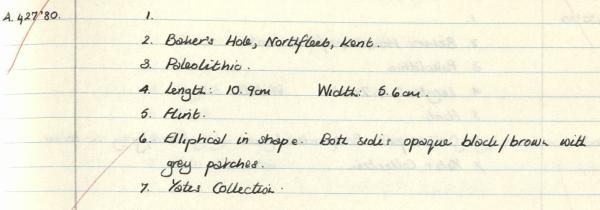 A.427'80. 1.
2. Baker's Hole, Northfleet, Kent.
3. Paleolithic.
4. Length: 10.9cm Width: 5.6cm.
5. Flint.
6. Elliptical in shape. Both sides opaque black/brown with
grey patches.
7. Yates Collection.